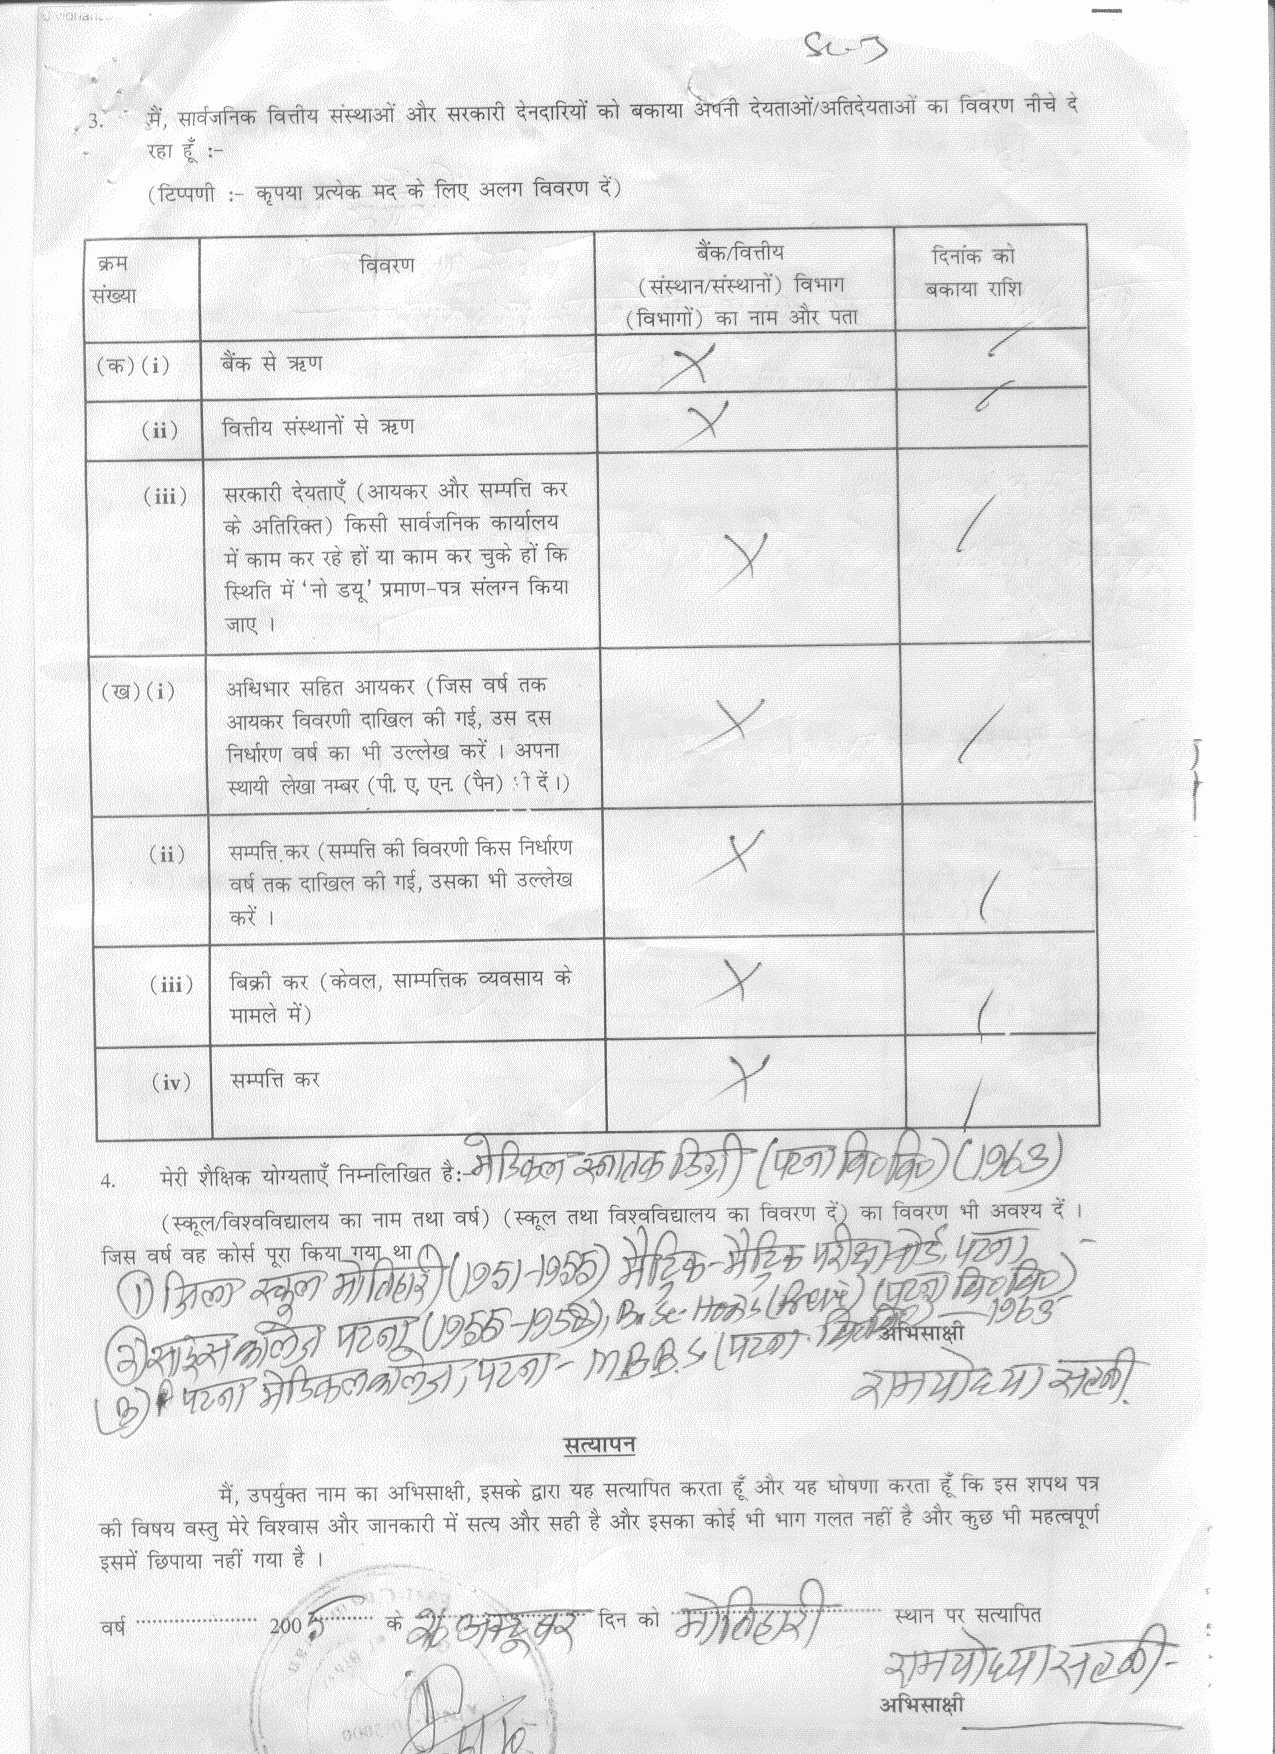 3. मैं, सार्वजनिक वित्तीय संस्थाओं और सरकारी देनदारियों को बकाया अपनी देयताओं/अतिदेयताओं का विवरण नीचे दे
रहा हूँ :-
(टिप्पणी :- कृपया प्रत्येक मद के लिए अलग विवरण दें)
क्रम संख्या
विवरण
बैंक/वित्तीय
(संस्थान/संस्थानों) विभाग
(विभागों) का नाम और पता
दिनांक को
बकाया राशि
(क)(i) बैंक से ऋण X /
(ii) वित्तीय संस्थानों से ऋण X /
(iii) सरकारी देयताएँ (आयकर और सम्पत्ति कर
के अतिरिक्त) किसी सार्वजनिक कार्यालय
में काम कर रहे हों या काम कर चुके हों कि
स्थिति में 'नो डयू' प्रमाण-पत्र संलग्न किया
जाए । X /
(ख)(i) अधिभार सहित आयकर (जिस वर्ष तक
आयकर विवरणी दाखिल की गई, उस दस
निर्धारण वर्ष का भी उल्लेख करें । अपना
स्थायी लेखा नम्बर (पी. ए. एन. (पैन) दें।) X /
(ii) सम्पत्ति कर (सम्पत्ति की विवरणी किस निर्धारण
वर्ष तक दाखिल की गई, उसका भी उल्लेख
करें । X /
(iii) बिक्री कर (केवल, साम्पत्तिक व्यवसाय के
मामले में) X /
(iv) सम्पत्ति कर X /
4. मेरी शैक्षिक योग्यताएँ निम्नलिखित है:- मेडिकल स्नातक डिग्री (पटना वि० वि०) (1963)
(स्कूल/विश्वविद्यालय का नाम तथा वर्ष) (स्कूल तथा विश्वविद्यालय का विवरण दें) का विवरण भी अवश्य दें ।
जिस वर्ष वह कोर्स पूरा किया गया था ।
① जिला स्कूल मोतिहारी (1951-1955) मैट्रिक-मैट्रिक परीक्षा बोर्ड, पटना
② साइंस कॉलेज पटना (1955-1958), (पटना वि० वि०)
③ पटना मेडिकल कॉलेज, पटना - M.B.B.S (पटना 1963
अभिसाक्षी
सत्यापन
मैं, उपर्युक्त नाम का अभिसाक्षी, इसके द्वारा यह सत्यापित करता हूँ और यह घोषणा करता हूँ कि इस शपथ पत्र
की विषय वस्तु मेरे विश्वास और जानकारी में सत्य और सही है और इसका कोई भी भाग गलत नहीं है और कुछ भी महत्वपूर्ण
इसमें छिपाया नहीं गया है ।
वर्ष ........ 2005 के अक्टूबर दिन को मोतिहारी स्थान पर सत्यापित
अभिसाक्षी